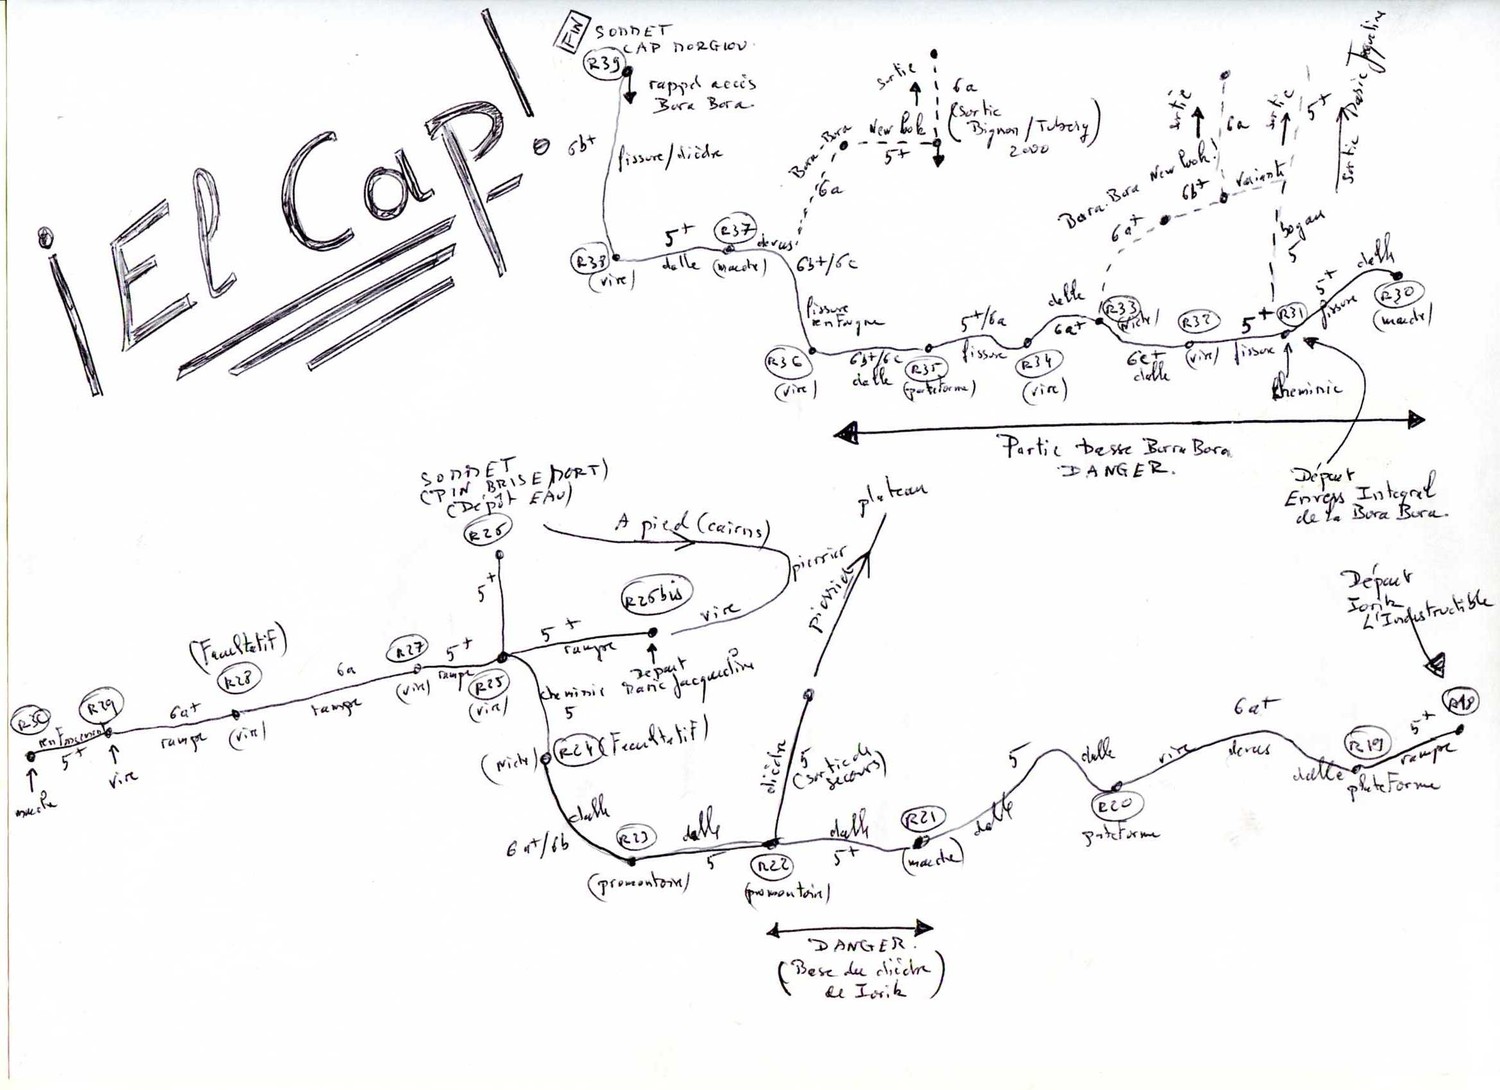 ¡El Cap!
FIN
SOMMET
CAP MORGIOU.
R39
rappel accès
Bora Bora.
6b+
fissure/dièdre
R38
(vire)
5+
dalle
R37
(marche)
devers
Bora-Bora
6a
sortie
New look
5+
6a
(Sortie
Bignon/Tubery)
2000
6b+/6c
fissure
R36
(vire)
6b+/6c
dalle
R35
(plateforme)
5+/6a
fissure
R34
(vire)
dalle
6a+
R33
(Niche)
6a+
Bora.Bora New look!
6b+
sortie
6a
variante
sortie
5+
Sortie Marie Jacqueline
boyau
5
6c+
dalle
R32
(vire)
5+
fissure
R31
cheminée
5+
fissure
dalle
R30
(marche)
Partie basse Bora Bora
DANGER.
Départ
Envers Integral
de la Bora Bora.
SOMMET
(PIN BRISE/MORT)
(Dépôt EAU)
R26
A pied (cairns)
pierrier
vire
5+
R25bis
5+
rampe
Départ
Marie Jacqueline
R25
(vire)
5+
rampe
R27
(vire)
6a
rampe
(Facultatif)
R28
(vire)
6a+
rampe
R29
vire
5+
R30
marche
cheminée
5
(Niche)
R24 (Facultatif)
dalle
6a+/6b
R23
(promontoire)
dalle
5
R22
(promontoire)
dièdre
5
(sortie de
secours)
pierrier
plateau
dalle
5+
R21
(marche)
dalle
5
dalle
R20
plateforme
vire
6a+
devers
dalle
R19
plateforme
5+
rampe
R18
Départ
Iorik
L'Indestructible
DANGER.
(Base du dièdre
de Iorik)